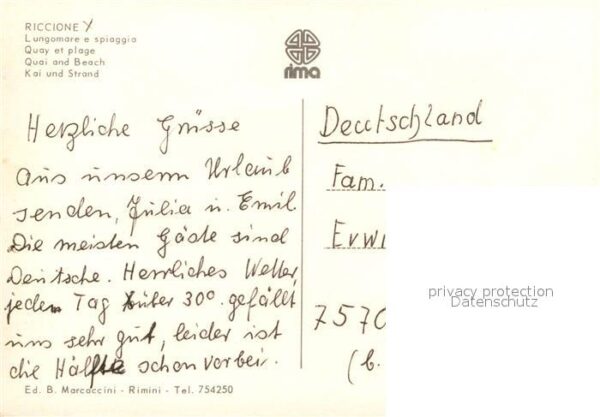 RICCIONE
Lungomare e spiaggia
Quay et plage
Quai and Beach
Kai und Strand
rima
Herzliche Grüsse
aus unserm Urlaub
senden, Julia u. Emil.
Die meisten Gäste sind
Deutsche. Herrliches Wetter,
jeden Tag über 30º. gefällt
uns sehr gut, leider ist
die Hälfte schon vorbei.
Deutschland
Fam.
Erwi
7570
(b.
privacy protection
Datenschutz
Ed. B. Marcaccini - Rimini - Tel. 754250